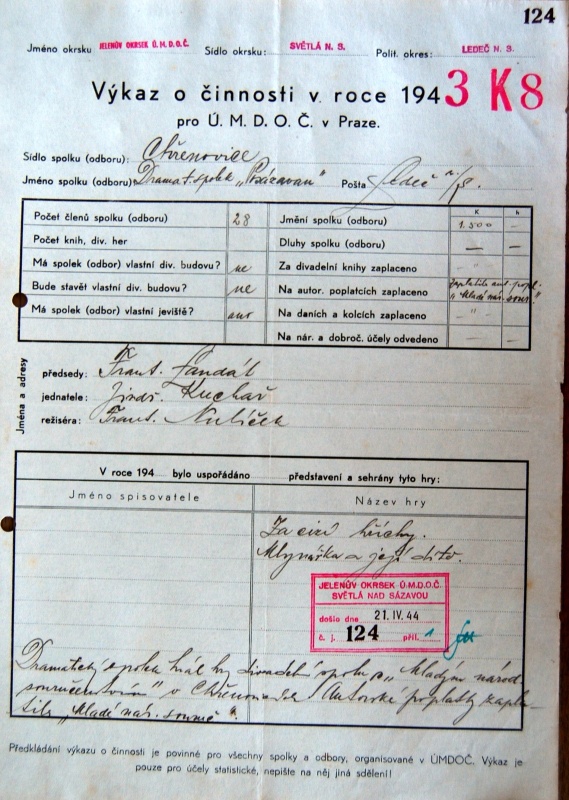 124
Jméno okrsku JELENŮV OKRSEK Ú.M.D.O.Č. Sídlo okrsku: SVĚTLÁ N. S. Polit. okres: LEDEČ N. S.
Výkaz o činnosti v roce 1943 K8
pro Ú. M. D. O. Č. v Praze.
Sídlo spolku (odboru): Chřenovice
Jméno spolku (odboru): Dramat. spolek „Posázavan“ Pošta Ledeč n./S.
K h
Počet členů spolku (odboru) 28 Jmění spolku (odboru) 1.500 —
Počet knih, div. her — Dluhy spolku (odboru) — —
Má spolek (odbor) vlastní div. budovu? ne Za divadelní knihy zaplaceno
Bude stavět vlastní div. budovu? ne Na autor. poplatcích zaplaceno zaplatila aut. popl. „Mladé nár. sour.“
Má spolek (odbor) vlastní jeviště? ano Na daních a kolcích zaplaceno — " —
Na nár. a dobroč. účely odvedeno — —
Jména a adresy
předsedy: Frant. Šandát
jednatele: Jindř. Kuchař
režiséra: Frant. Nulíček
V roce 194 bylo uspořádáno představení a sehrány tyto hry:
Jméno spisovatele Název hry
Za cizí hříchy.
Mlynářka a její dítě.
JELENŮV OKRSEK Ú.M.D.O.Č.
SVĚTLÁ NAD SÁZAVOU
došlo dne 21. IV. 44
č. j. 124 příl. 1
Dramatický spolek hrál hry divadelní spolu s „Mladým národ.
souručenstvím“ v Chřenovicích. Autorské poplatky zapla-
tilo „Mladé nár. souruč.“
Předkládání výkazu o činnosti je povinné pro všechny spolky a odbory, organisované v ÚMDOČ. Výkaz je
pouze pro účely statistické, nepište na něj jiná sdělení!